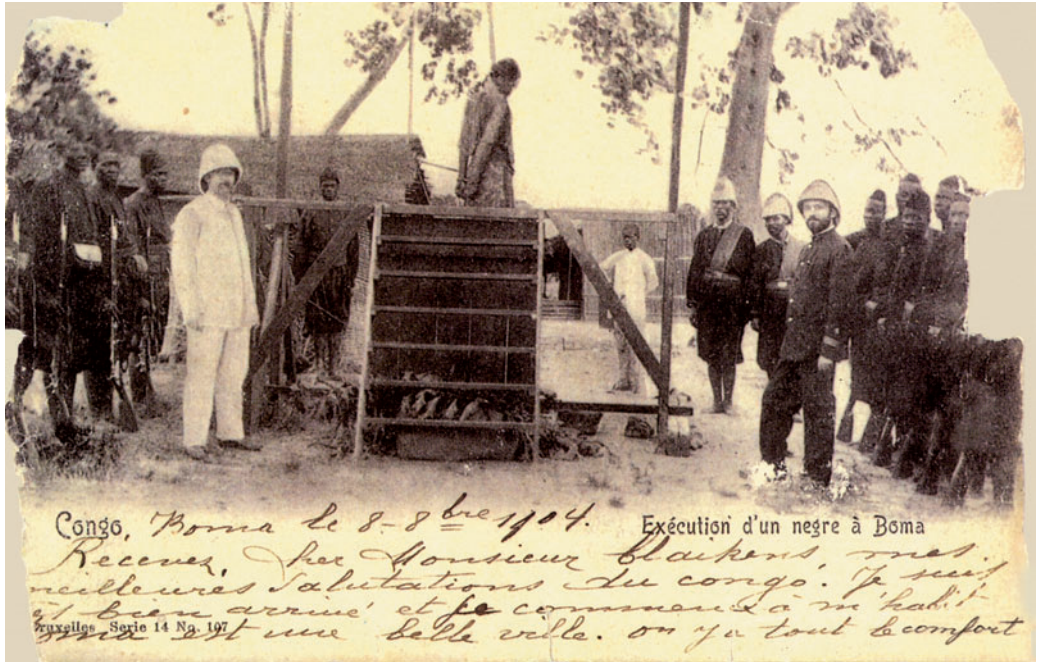 Congo, Boma le 8-8bre 1904.
Exécution d'un negre à Boma
Recevez, her Monsieur Claikens, mes
meilleures salutations du congo. Je suis
bien arrivé et je commence à m'habit
est une belle ville. on y a tout le comfort
ruxelles Serie 14 No. 107